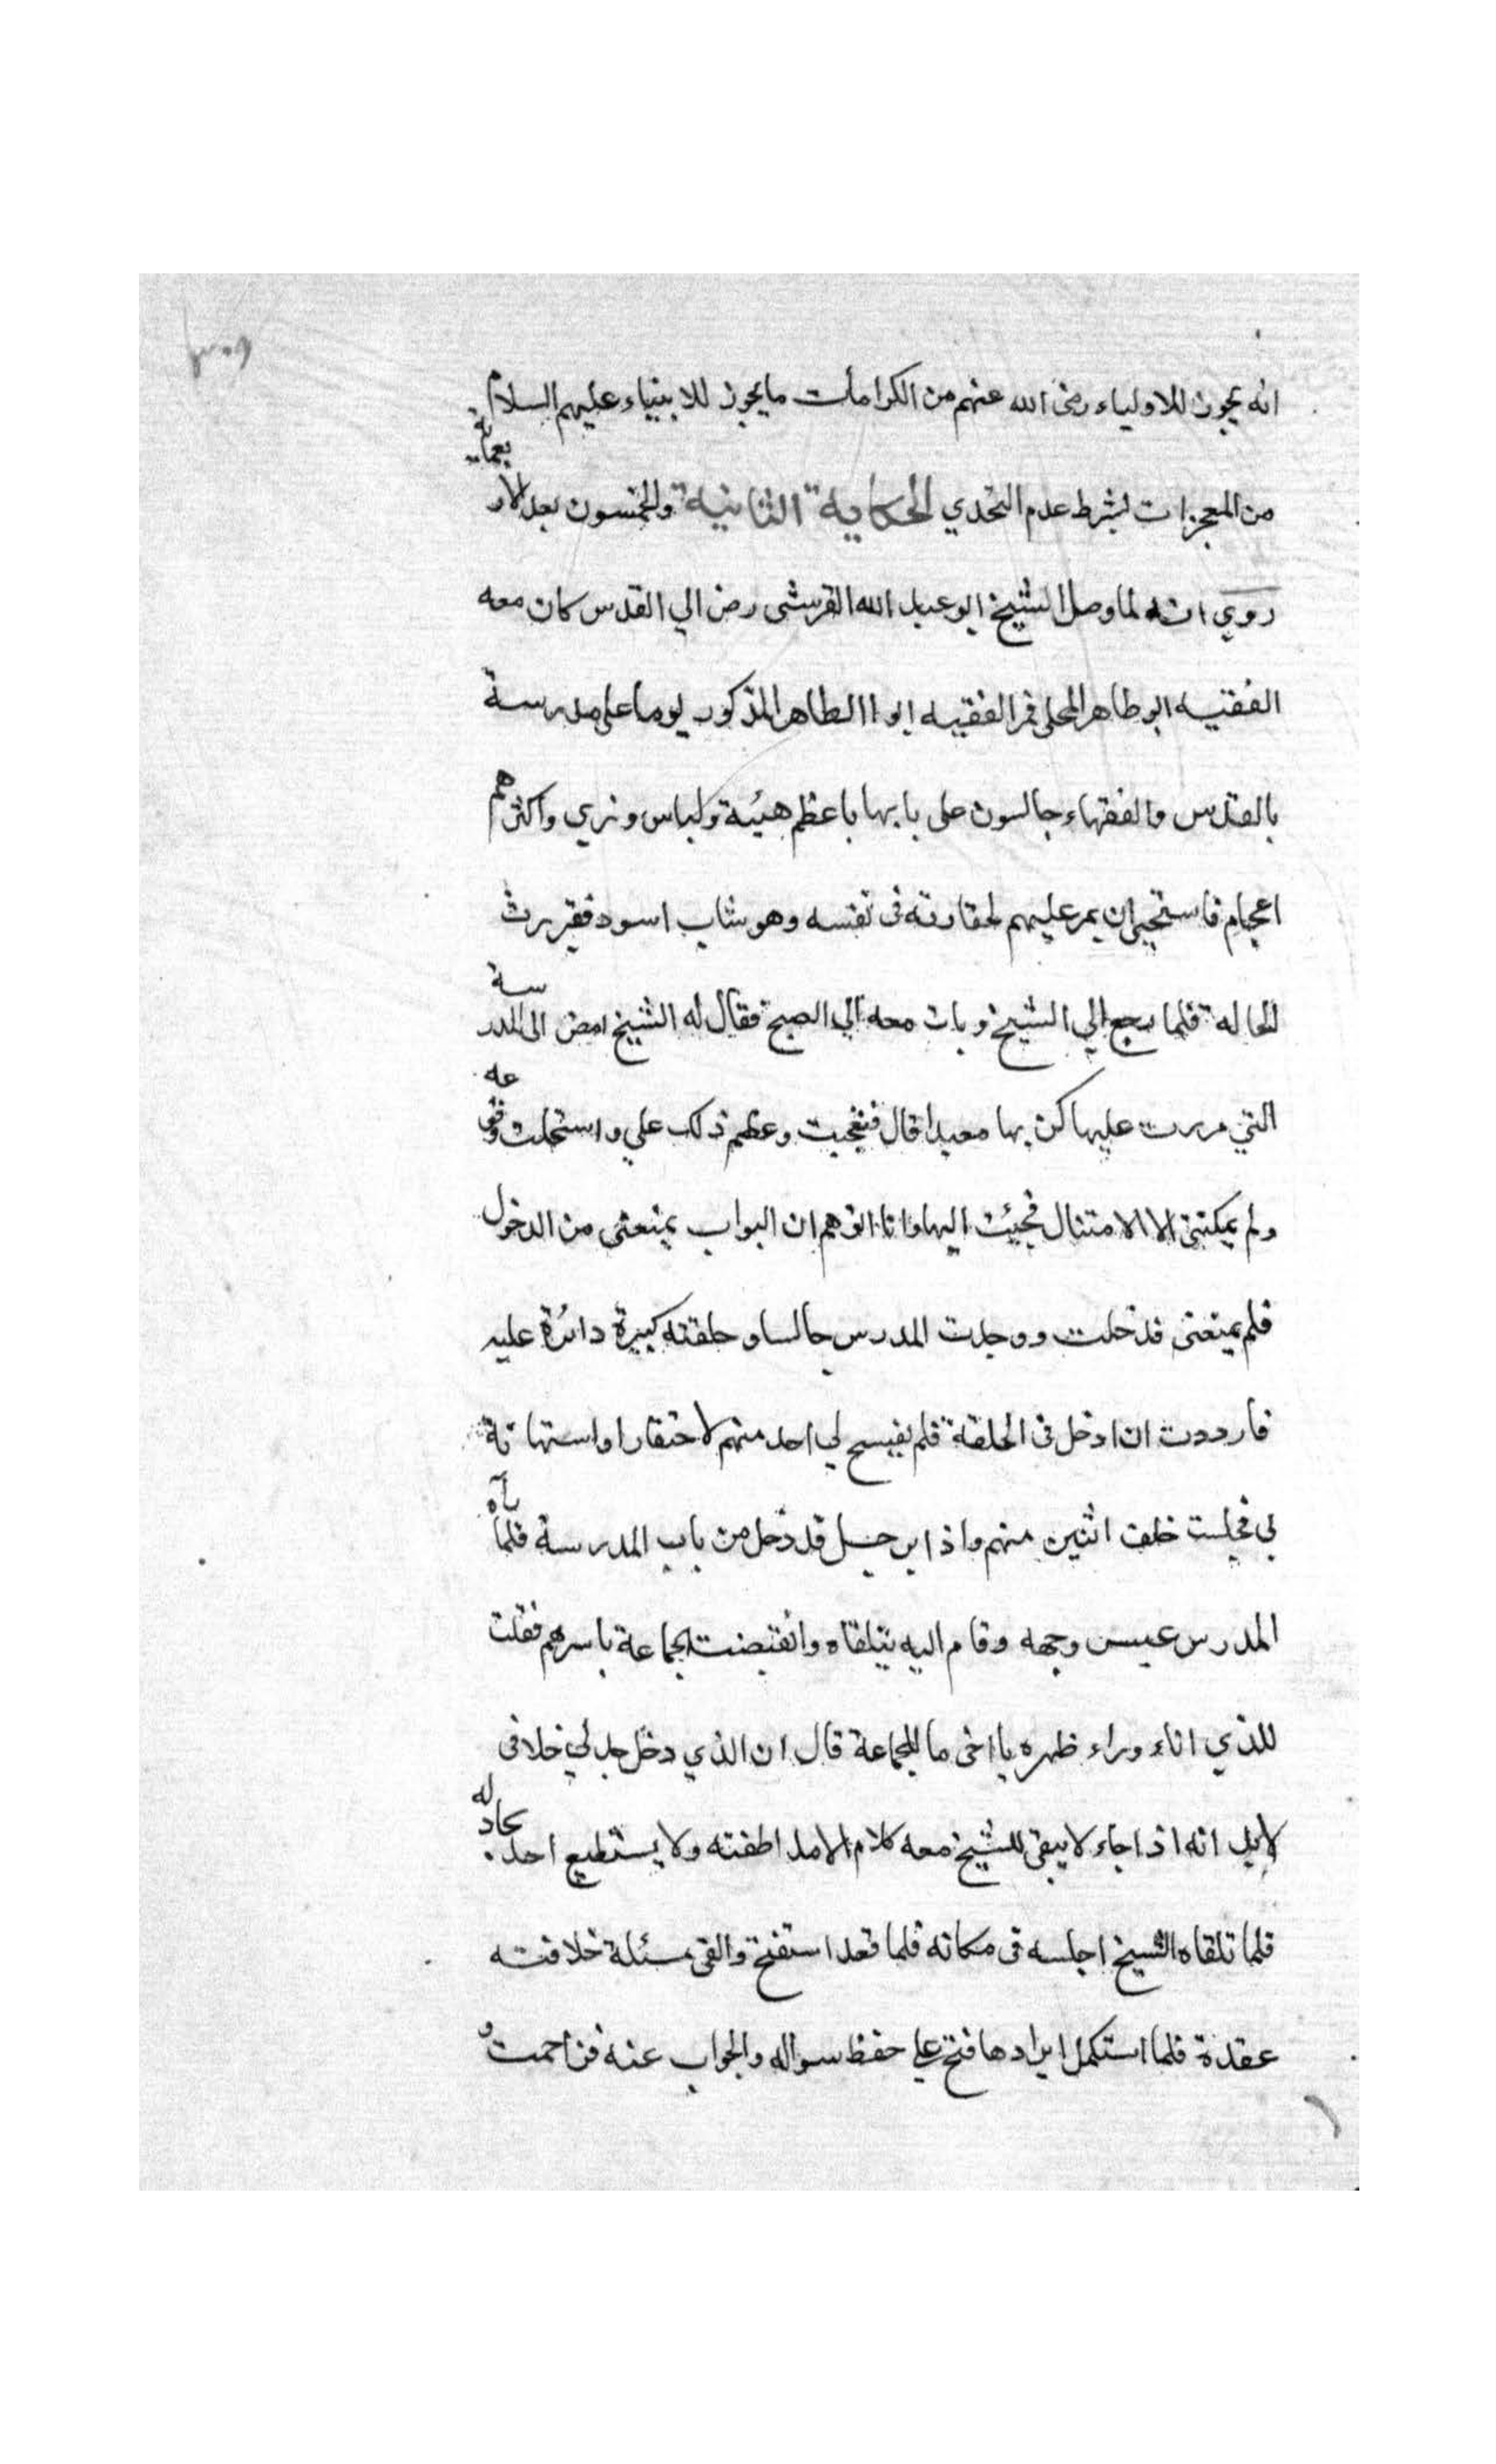 انه يجوز للاولياء رضى الله عنهم من الكرامات ما يجوز للانبياء عليهم السلام
من المعجزات بشرط عدم التحدي الحكاية الثانية والخمسون بعد الاربعماية
روي انه لما وصل الشيخ ابو عبد الله القرشى رضى الي القدس كان معه
الفقيه ابو طاهر المحلى فمر الفقيه ابو االطاهر المذكور يوما على مدرسة
بالقدس والفقهاء جالسون على بابها باعظم هيئة ولباس وزي واكثرهم
اعجام فاستحيى ان يمر عليهم لحقارته فى نفسه وهو شاب اسود فقير رث
الحاله فلما رجع الي الشيخ وبات معه الي الصبح فقال له الشيخ امض الى المدرسة
التي مررت عليها كن بها معيدا قال فتعجبت وعظم ذلك علي واستحلت وقوعه
ولم يمكننى الا الامتثال فجيئت اليها وانا اتوهم ان البواب يمنعنى من الدخول
فلم يمنعنى فدخلت ووجدت المدرس جالسا وحلقته كبيرة دائرة عليه
فارددت ان ادخل فى الحلقة فلم يفسح لي احد منهم لاحتقارا واستهانة
بي فجلست خلف اثنين منهم واذا برجل قد دخل من باب المدرسة فلما رآه
المدرس عبس وجهه وقام اليه يتلقاه وانقبضت الجماعة باسرهم فقلت
للذي اناء وراء ظهره يا اخى ما للجماعة قال ان الذي دخل جدلي خلافى
لابد انه اذا جاء لا يبقى للشيخ معه كلام الا ملاطفته ولا يستطيع احد يجادله
فلما تلقاه الشيخ اجلسه فى مكانه فلما قعد استفتح والقى مسئلة خلافته
عقدة فلما استكمل ايرادها فتح علي حفظ سواله والجواب عنه فزاحمت